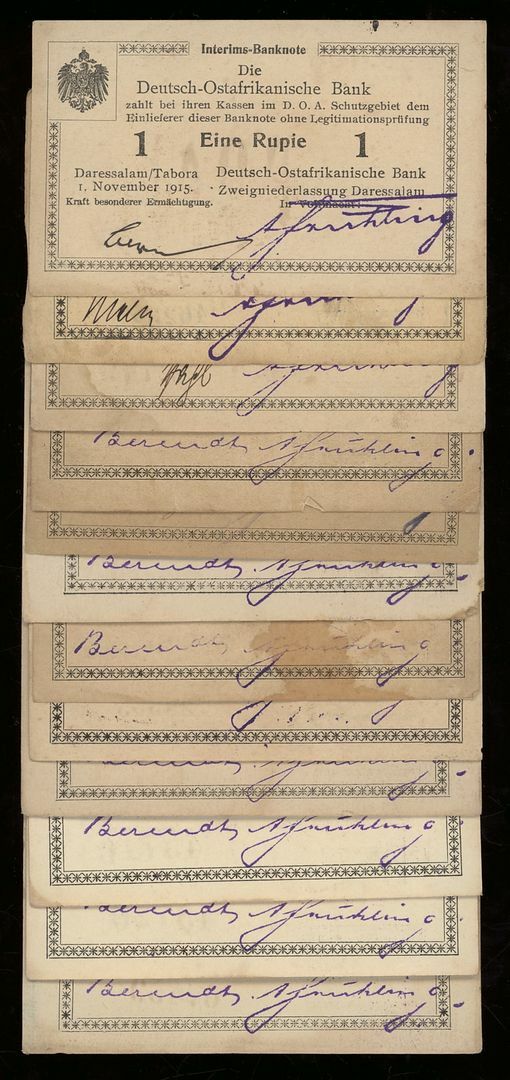 Interims-Banknote
Die
Deutsch-Ostafrikanische Bank
zahlt bei ihren Kassen im D. O. A. Schutzgebiet dem
Einlieferer dieser Banknote ohne Legitimationsprüfung
1 Eine Rupie 1
Daressalam/Tabora
1. November 1915.
Kraft besonderer Ermächtigung.
Deutsch-Ostafrikanische Bank
Zweigniederlassung Daressalam
In Vollmacht:
A Frühling
Berendt A Frühling
Berendt A Frühling
Berendt A Frühling
Berendt A Frühling
Berendt A Frühling
Berendt A Frühling